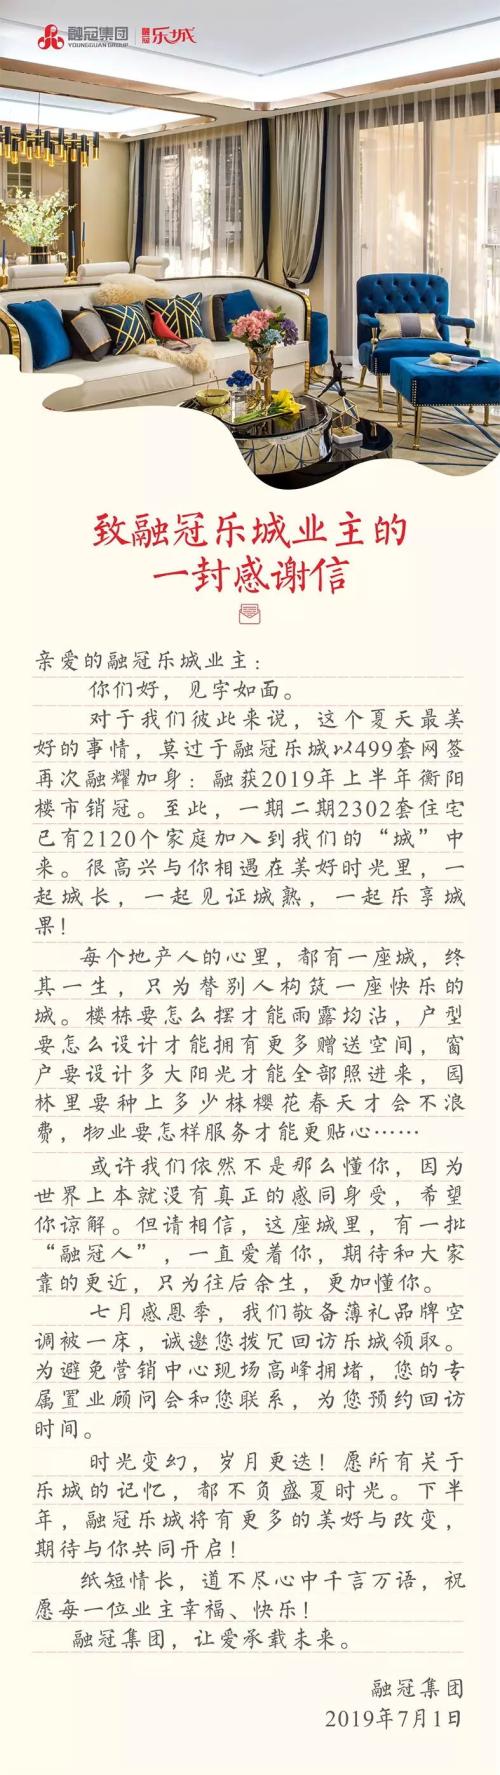 融冠集团
YOUNGGUAN GROUP
融冠
乐城
致融冠乐城业主的
一封感谢信
亲爱的融冠乐城业主：
你们好，见字如面。
对于我们彼此来说，这个夏天最美
好的事情，莫过于融冠乐城以499套网签
再次融耀加身：融获2019年上半年衡阳
楼市销冠。至此，一期二期2302套住宅
已有2120个家庭加入到我们的“城”中
来。很高兴与你相遇在美好时光里，一
起城长，一起见证城熟，一起乐享城
果！
每个地产人的心里，都有一座城，终
其一生，只为替别人构筑一座快乐的
城。楼栋要怎么摆才能雨露均沾，户型
要怎么设计才能拥有更多赠送空间，窗
户要设计多大阳光才能全部照进来，园
林里要种上多少株樱花春天才会不浪
费，物业要怎样服务才能更贴心……
或许我们依然不是那么懂你，因为
世界上本就没有真正的感同身受，希望
你谅解。但请相信，这座城里，有一批
“融冠人”，一直爱着你，期待和大家
靠的更近，只为往后余生，更加懂你。
七月感恩季，我们敬备薄礼品牌空
调被一床，诚邀您拨冗回访乐城领取。
为避免营销中心现场高峰拥堵，您的专
属置业顾问会和您联系，为您预约回访
时间。
时光变幻，岁月更迭！愿所有关于
乐城的记忆，都不负盛夏时光。下半
年，融冠乐城将有更多的美好与改变，
期待与你共同开启！
纸短情长，道不尽心中千言万语，祝
愿每一位业主幸福、快乐！
融冠集团，让爱承载未来。
融冠集团
2019年7月1日